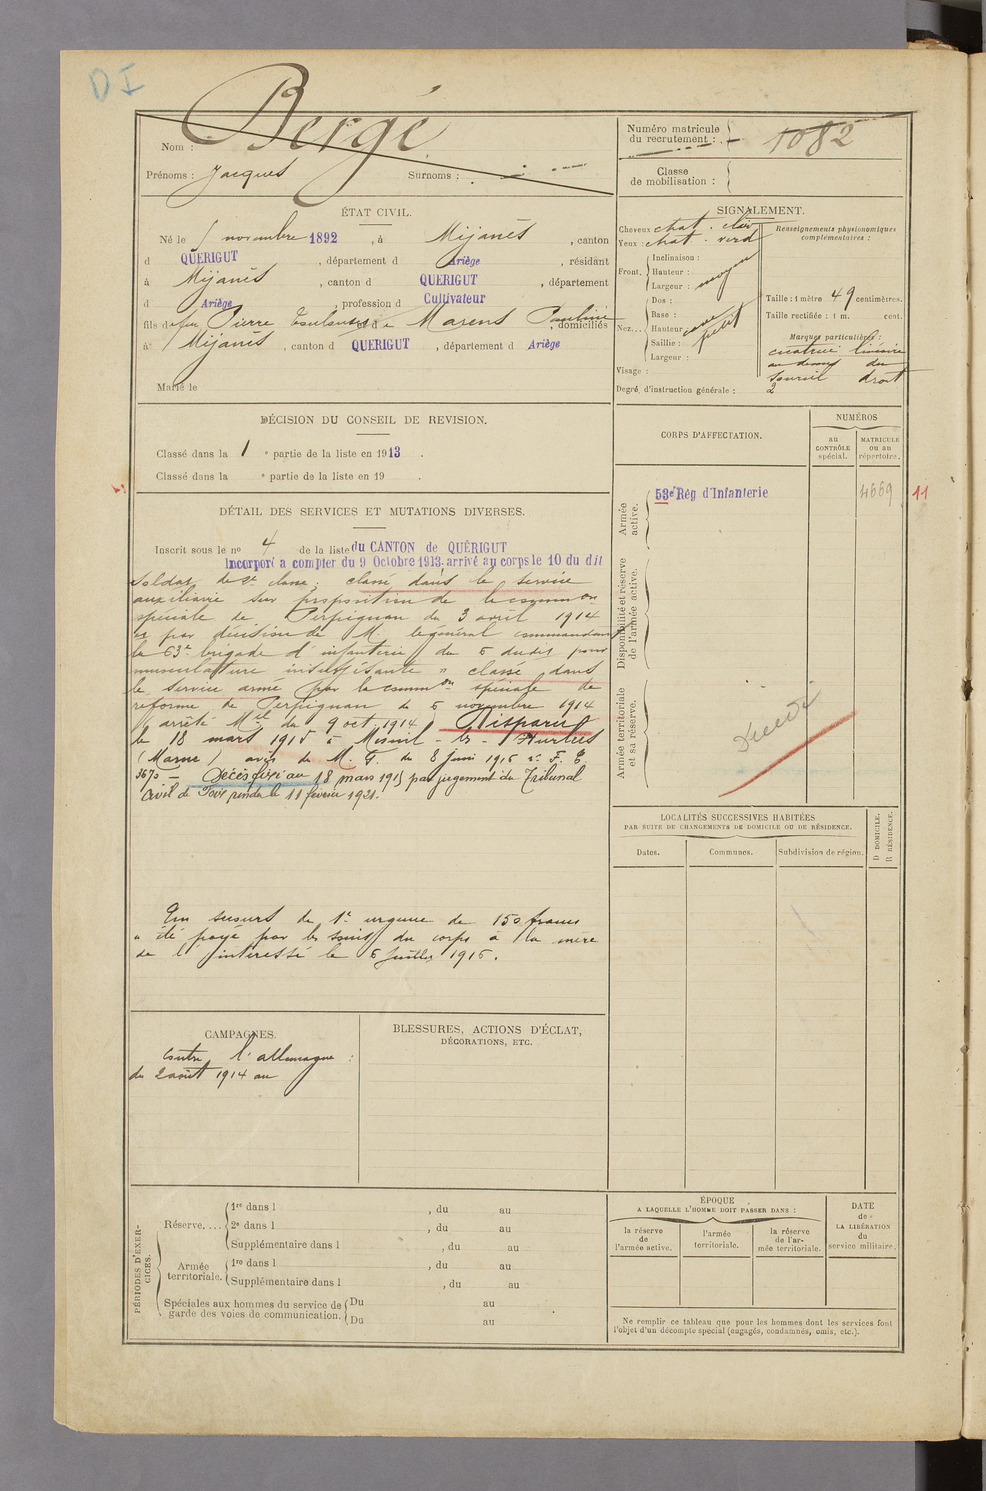 D I
Nom : Bergé
Prénoms : Jacques Surnoms :
Numéro matricule
du recrutement : 1082
Classe
de mobilisation :
ÉTAT CIVIL.
Né le 5 novembre 1892, à Mijanès, canton
d QUERIGUT, département d Ariège, résidant
à Mijanès, canton d QUERIGUT, département
d Ariège, profession d Cultivateur
fils de feu Pierre Toulouse et de Marens Pauline, domiciliés
à Mijanès, canton d QUERIGUT, département d Ariège
Marié le
SIGNALEMENT.
Cheveux chat. clair
Yeux : chat. verd
Front. Inclinaison :
Hauteur : moyen
Largeur :
Nez... Dos :
Base : cave
Hauteur petit
Saillie :
Largeur :
Visage :
Degré d'instruction générale : 2
Renseignements physionomiques
complémentaires :
Taille : 1 mètre 49 centimètres.
Taille rectifiée : 1 m. cent.
Marques particulières :
cicatrice linéaire
au dessus du
sourcil droit
DÉCISION DU CONSEIL DE REVISION.
Classé dans la 1 e partie de la liste en 1913.
Classé dans la e partie de la liste en 19 .
CORPS D'AFFECTATION.
NUMÉROS
au
CONTRÔLE
spécial.
MATRICULE
ou au
répertoire.
Armée
active.
53e Rég d'Infanterie
4669
11
Disponibilité et réserve
de l'armée active.
Armée territoriale
et sa réserve.
Décédé
DÉTAIL DES SERVICES ET MUTATIONS DIVERSES.
Inscrit sous le no 4 de la liste du CANTON de QUÉRIGUT
Incorporé a compter du 9 Octobre 1913. arrivé au corps le 10 du dit
Soldat de 2e classe ; classé dans le service
auxiliaire sur proposition de la common
spéciale de Perpignan du 3 avril 1914
et par décision de M. le général commandant
la 63e brigade d'infanterie du 6 dudit pour
musculature insuffisante " classé dans
le service armé par la common spéciale de
réforme de Perpignan du 6 novembre 1914
(arrêté Mel du 9 oct. 1914) Disparu
le 18 mars 1915 à Mesnil-les-Hurlus
(Marne) avis du M. G. du 8 juin 1915 n° F. C.
3670 — Décès fixé au 18 mars 1915 par jugement du Tribunal
Civil de Foix rendu le 11 février 1921.
Un secours de 1e urgence de 150 francs
a été payé par les soins du corps à la mère
de l'intéressé le 6 juillet 1915.
LOCALITÉS SUCCESSIVES HABITÉES
PAR SUITE DE CHANGEMENTS DE DOMICILE OU DE RÉSIDENCE.
Dates.
Communes.
Subdivision de région.
D DOMICILE.
R RÉSIDENCE.
CAMPAGNES.
Contre l'allemagne :
du 2 août 1914 au
BLESSURES, ACTIONS D'ÉCLAT,
DÉCORATIONS, ETC.
PÉRIODES D'EXER-
CICES.
Réserve.... 1re dans l , du au
2e dans l , du au
Supplémentaire dans l , du au
Armée
territoriale. 1re dans l , du au
Supplémentaire dans l , du au
Spéciales aux hommes du service de
garde des voies de communication. Du au
Du au
ÉPOQUE
A LAQUELLE L'HOMME DOIT PASSER DANS :
la réserve
de
l'armée active.
l'armée
territoriale.
la réserve
de l'ar-
mée territoriale.
DATE
de
LA LIBÉRATION
du
service militaire.
Ne remplir ce tableau que pour les hommes dont les services font
l'objet d'un décompte spécial (engagés, condamnés, omis, etc.).